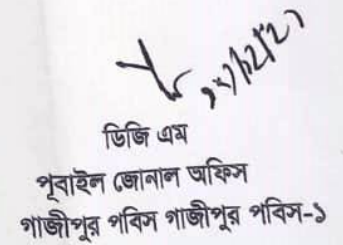 ডিজি এম
পূবাইল জোনাল অফিস
গাজীপুর পবিস গাজীপুর পবিস-১